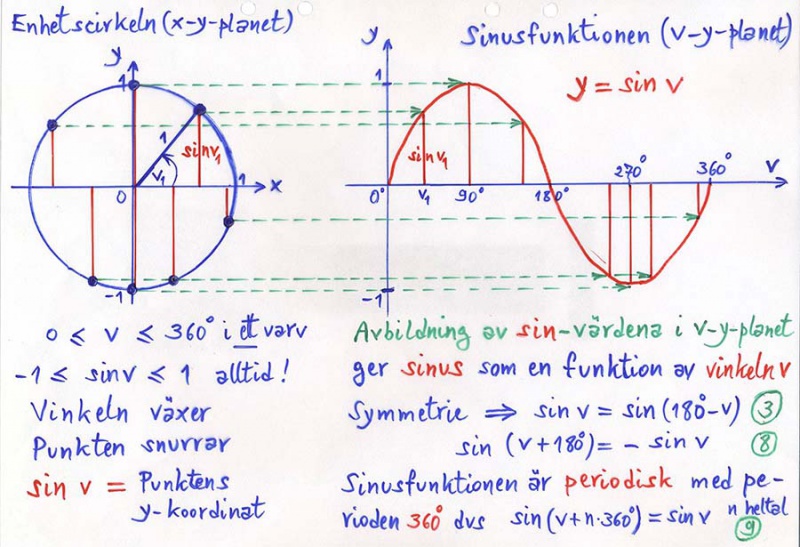 Enhetscirkeln (x-y-planet)
y
1
1
sin v₁
v₁
0
1
x
-1
0 ≤ v ≤ 360° i ett varv
-1 ≤ sin v ≤ 1 alltid!
Vinkeln växer
Punkten snurrar
sin v = Punktens
y-koordinat
Sinusfunktionen (v-y-planet)
y
y = sin v
1
sin v₁
0°
v₁
90°
180°
270°
360°
v
-1
Avbildning av sin-värdena i v-y-planet
ger sinus som en funktion av vinkeln v
Symmetrie ⇒ sin v = sin (180°-v) ③
sin (v+180°) = - sin v ⑧
Sinusfunktionen är periodisk med pe-
rioden 360° dvs sin (v+n·360°) = sin v n heltal
⑨